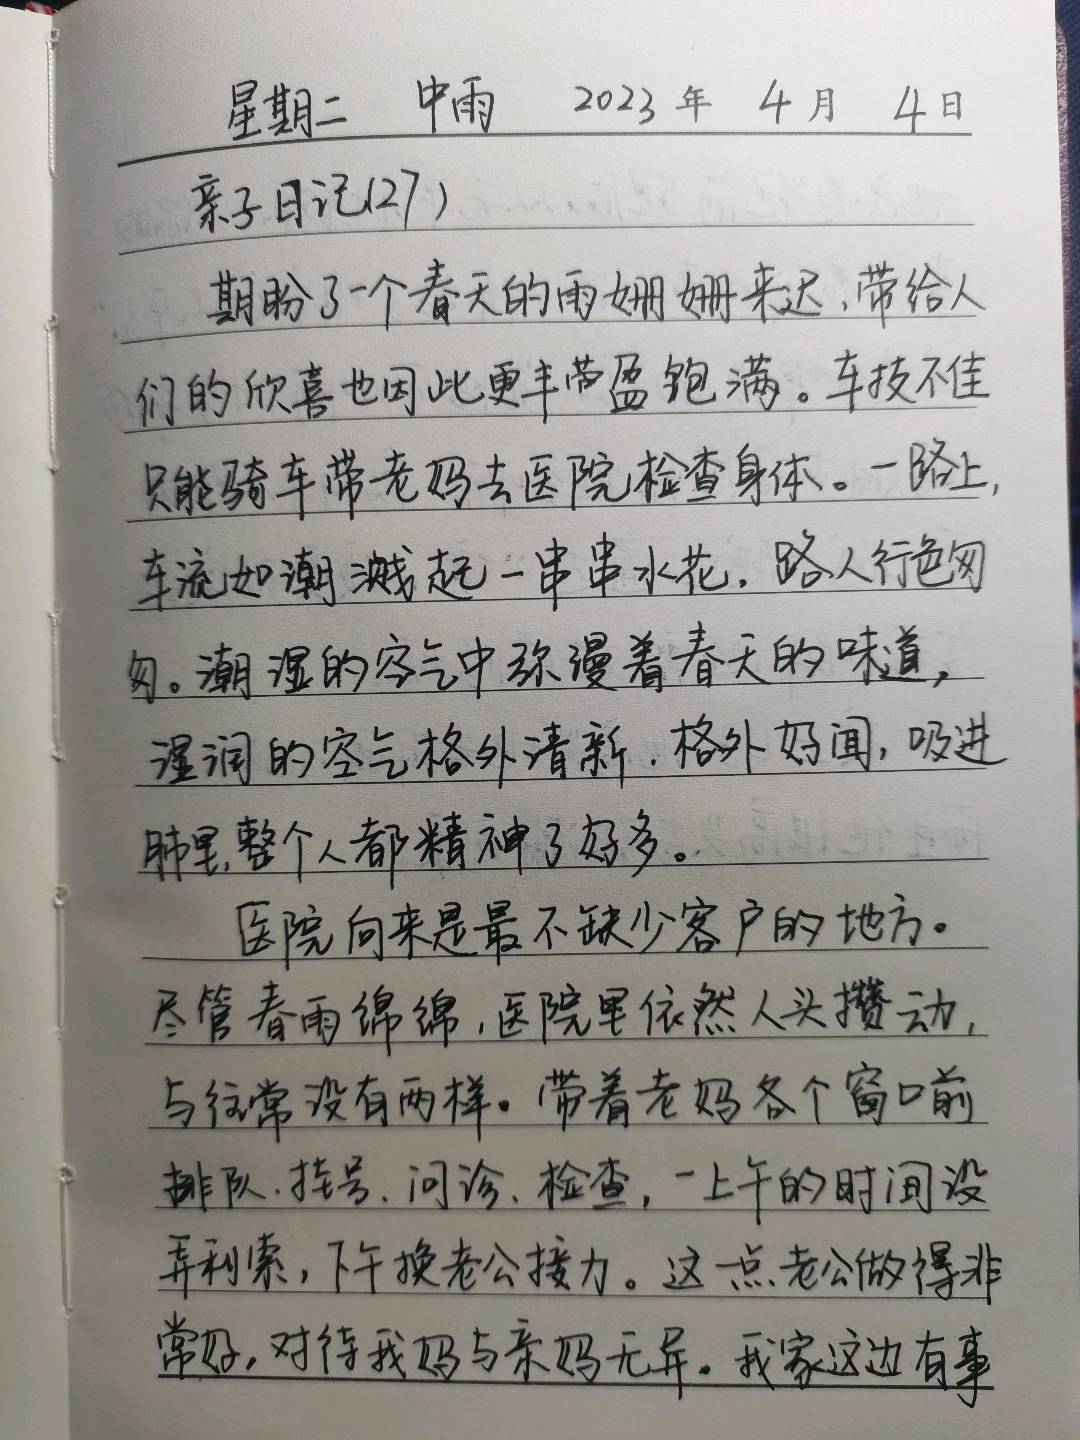 星期二 中雨 2023年 4月 4日
亲子日记(27)
期盼了一个春天的雨姗姗来迟,带给人
们的欣喜也因此更丰盈饱满。车技不佳
只能骑车带老妈去医院检查身体。一路上,
车流如潮溅起一串串水花,路人行色匆
匆。潮湿的空气中弥漫着春天的味道,
湿润的空气格外清新,格外好闻,吸进
肺里,整个人都精神了好多。
医院向来是最不缺少客户的地方。
尽管春雨绵绵,医院里依然人头攒动,
与往常没有两样。带着老妈各个窗口前
排队、挂号、问诊、检查,一上午的时间没
弄利索,下午换老公接力。这一点老公做得非
常好,对待我妈与亲妈无异。我家这边有事